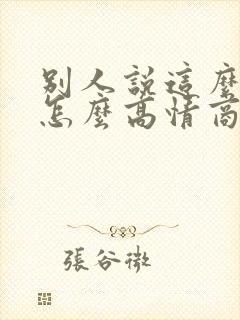 別人說這麼
怎麼高情商
張谷微